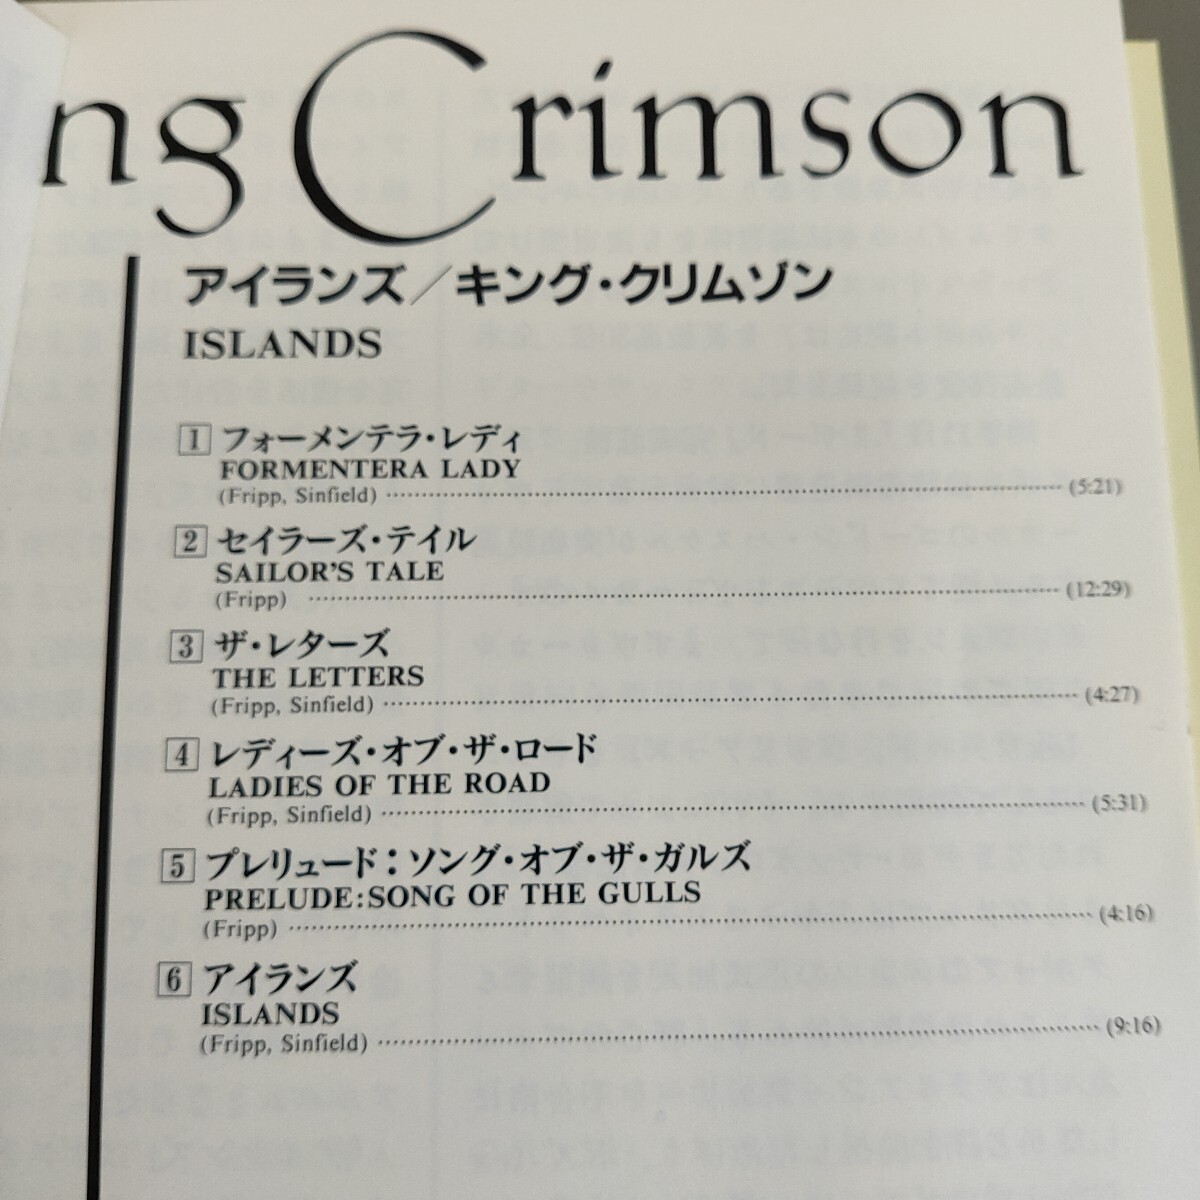 ng Crimson
アイランズ／キング・クリムゾン
ISLANDS
1 フォーメンテラ・レディ
FORMENTERA LADY
(Fripp, Sinfield) (5:21)
2 セイラーズ・テイル
SAILOR'S TALE
(Fripp) (12:29)
3 ザ・レターズ
THE LETTERS
(Fripp, Sinfield) (4:27)
4 レディーズ・オブ・ザ・ロード
LADIES OF THE ROAD
(Fripp, Sinfield) (5:31)
5 プレリュード：ソング・オブ・ザ・ガルズ
PRELUDE:SONG OF THE GULLS
(Fripp) (4:16)
6 アイランズ
ISLANDS
(Fripp, Sinfield) (9:16)